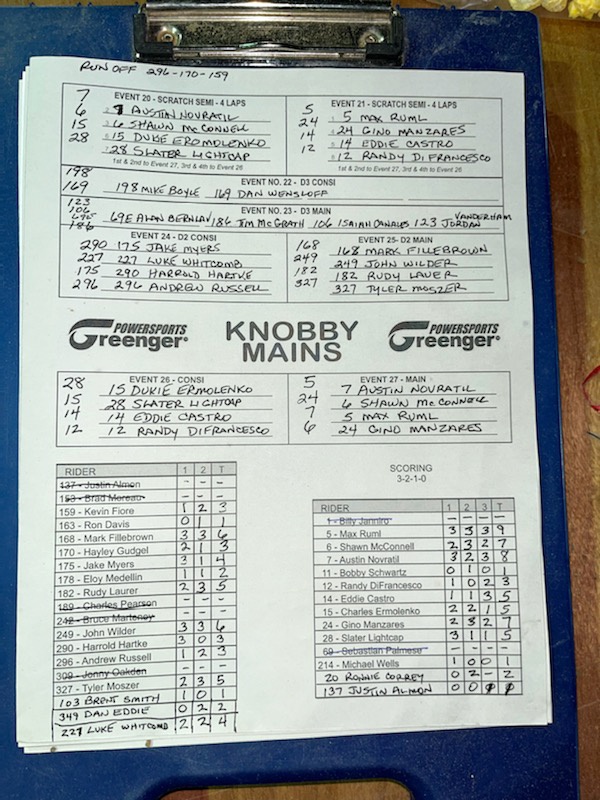 RUN OFF 296-170-159
EVENT 20 - SCRATCH SEMI - 4 LAPS
7 7 AUSTIN NOVRATIL
6 6 SHAWN McCONNELL
15 15 DUKIE EROMOLENKO
28 28 SLATER LIGHTCAP
1st & 2nd to Event 27, 3rd & 4th to Event 26
EVENT 21 - SCRATCH SEMI - 4 LAPS
5 5 MAX RUML
24 24 GINO MANZARES
14 14 EDDIE CASTRO
12 12 RANDY DIFRANCESCO
1st & 2nd to Event 27, 3rd & 4th to Event 26
EVENT NO. 22 - D3 CONSI
198
169 198 MIKE BOYLE 169 DAN WENSLOFF
EVENT NO. 23 - D3 MAIN
123
106
69E
186
69E ALAN BERNLAV 186 TIM McGRATH 106 ISAIAH CANALES 123 JORDAN VANDERHAM
EVENT 24 - D2 CONSI
290 175 JAKE MYERS
227 227 LUKE WHITCOMB
175 290 HARROLD HARTKE
296 296 ANDREW RUSSELL
EVENT 25- D2 MAIN
168 168 MARK FILLEBROWN
249 249 JOHN WILDER
182 182 RUDY LAUER
327 327 TYLER MOSZER
POWERSPORTS
Greenger
KNOBBY
MAINS
POWERSPORTS
Greenger
EVENT 26 - CONSI
28 15 DUKIE ERMOLENKO
15 28 SLATER LIGHTCAP
14 14 EDDIE CASTRO
12 12 RANDY DIFRANCESCO
EVENT 27 - MAIN
5 7 AUSTIN NOVRATIL
24 6 SHAWN McCONNELL
7 5 MAX RUML
6 24 GINO MANZARES
RIDER 1 2 T
137 - Justin Almon - - -
153 - Brad Moreau - - -
159 - Kevin Fiore 1 2 3
163 - Ron Davis 0 1 1
168 - Mark Fillebrown 3 3 6
170 - Hayley Gudgel 2 1 3
175 - Jake Myers 3 1 4
178 - Eloy Medellin 1 1 2
182 - Rudy Laurer 2 3 5
189 - Charles Pearson - - -
242 - Bruce Marteney - - -
249 - John Wilder 3 3 6
290 - Harrold Hartke 3 0 3
296 - Andrew Russell 1 2 3
309 - Jonny Oakden - - -
327 - Tyler Moszer 2 3 5
103 BRENT SMITH 1 0 1
349 DAN EDDIE 0 2 2
227 LUKE WHITCOMB 2 2 4
SCORING
3-2-1-0
RIDER 1 2 3 T
1 - Billy Janniro - - - -
5 - Max Ruml 3 3 3 9
6 - Shawn McConnell 2 3 2 7
7 - Austin Novratil 3 2 3 8
11 - Bobby Schwartz 0 1 0 1
12 - Randy DiFrancesco 1 0 2 3
14 - Eddie Castro 1 1 3 5
15 - Charles Ermolenko 2 2 1 5
24 - Gino Manzares 2 3 2 7
28 - Slater Lightcap 3 1 1 5
69 - Sebastian Palmese - - - -
214 - Michael Wells 1 0 0 1
20 RONNIE CORREY 0 2 - 2
137 JUSTIN ALMON 0 0 0 0